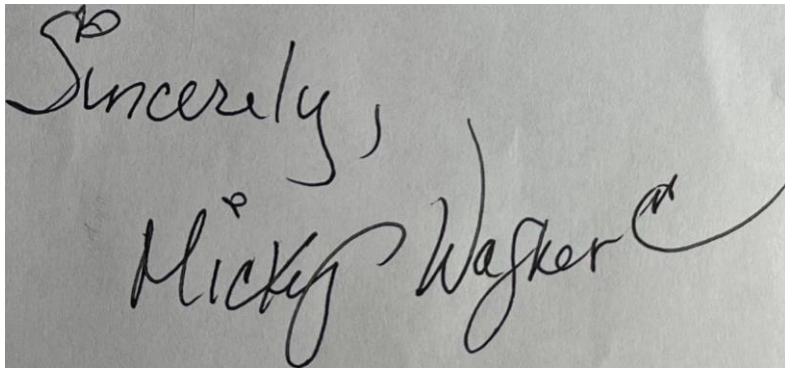 Sincerely,
Micky Wafker